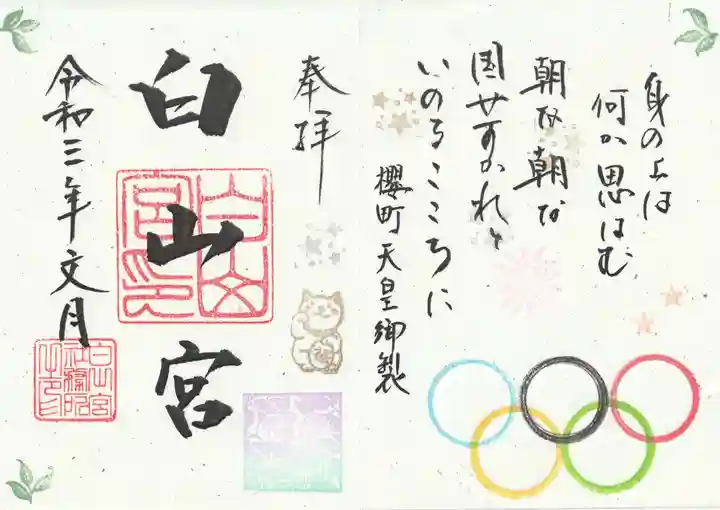 身の上は
何か思はむ
朝な朝な
国やすかれと
いのるこころに
櫻町天皇御製
奉拝
白山宮
白山宮印
令和三年文月